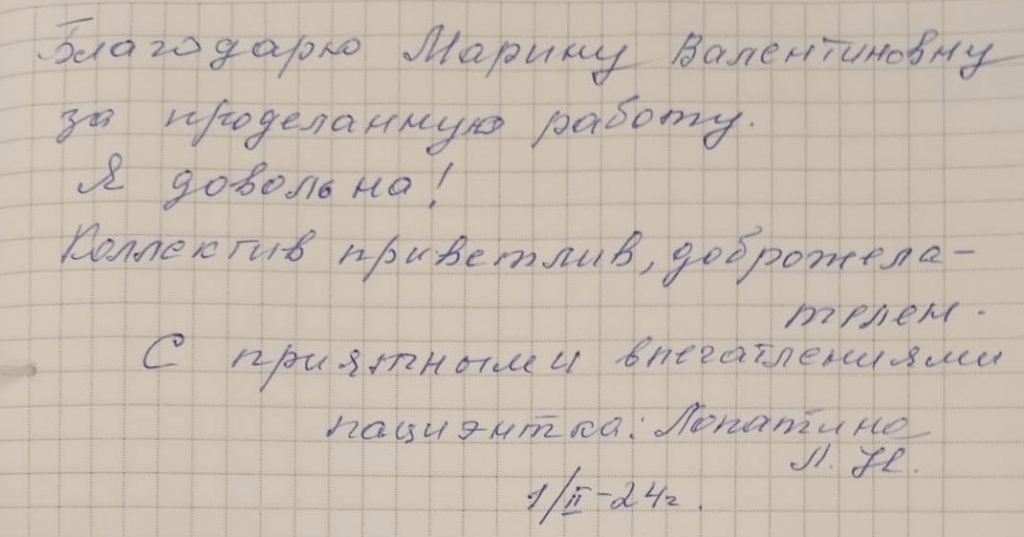 Благодарю Марину Валентиновну
за проделанную работу.
Я довольна!
Коллектив приветлив, доброжела-
телен.
С приятными впечатлениями
пациэнтка: Лопатина
Л. Н.
1/II-24г.